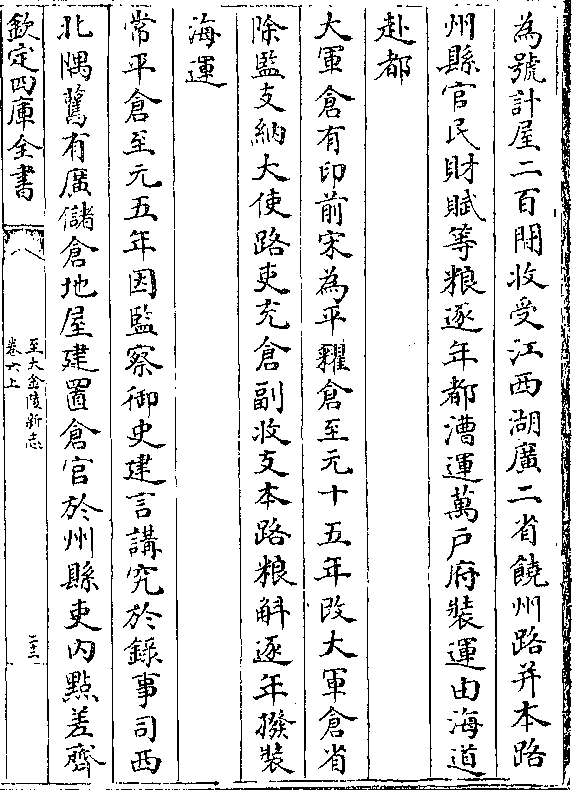 為號計屋二百間收受江西湖廣二省饒州路并本路
州縣官民財賦等粮逐年都漕運萬戶府裝運由海道
赴都
大軍倉有印前宋為平糴倉至元十五年改大軍倉省
除監支納大使路吏充倉副收支本路粮斛逐年撥裝
海運
常平倉至元五年因監察御史建言講究於錄事司西
北隅舊有廣儲倉地屋建置倉官於州縣吏内點差齊
欽定四庫全書
至大金陵新志
卷六上
二十二